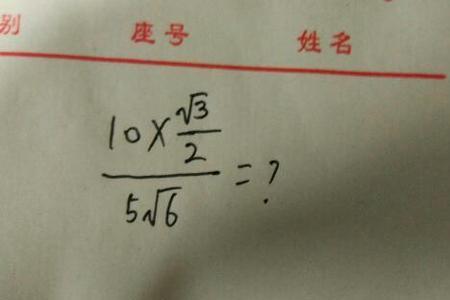 别 座号 姓名
10×√3/2
5√6
=?